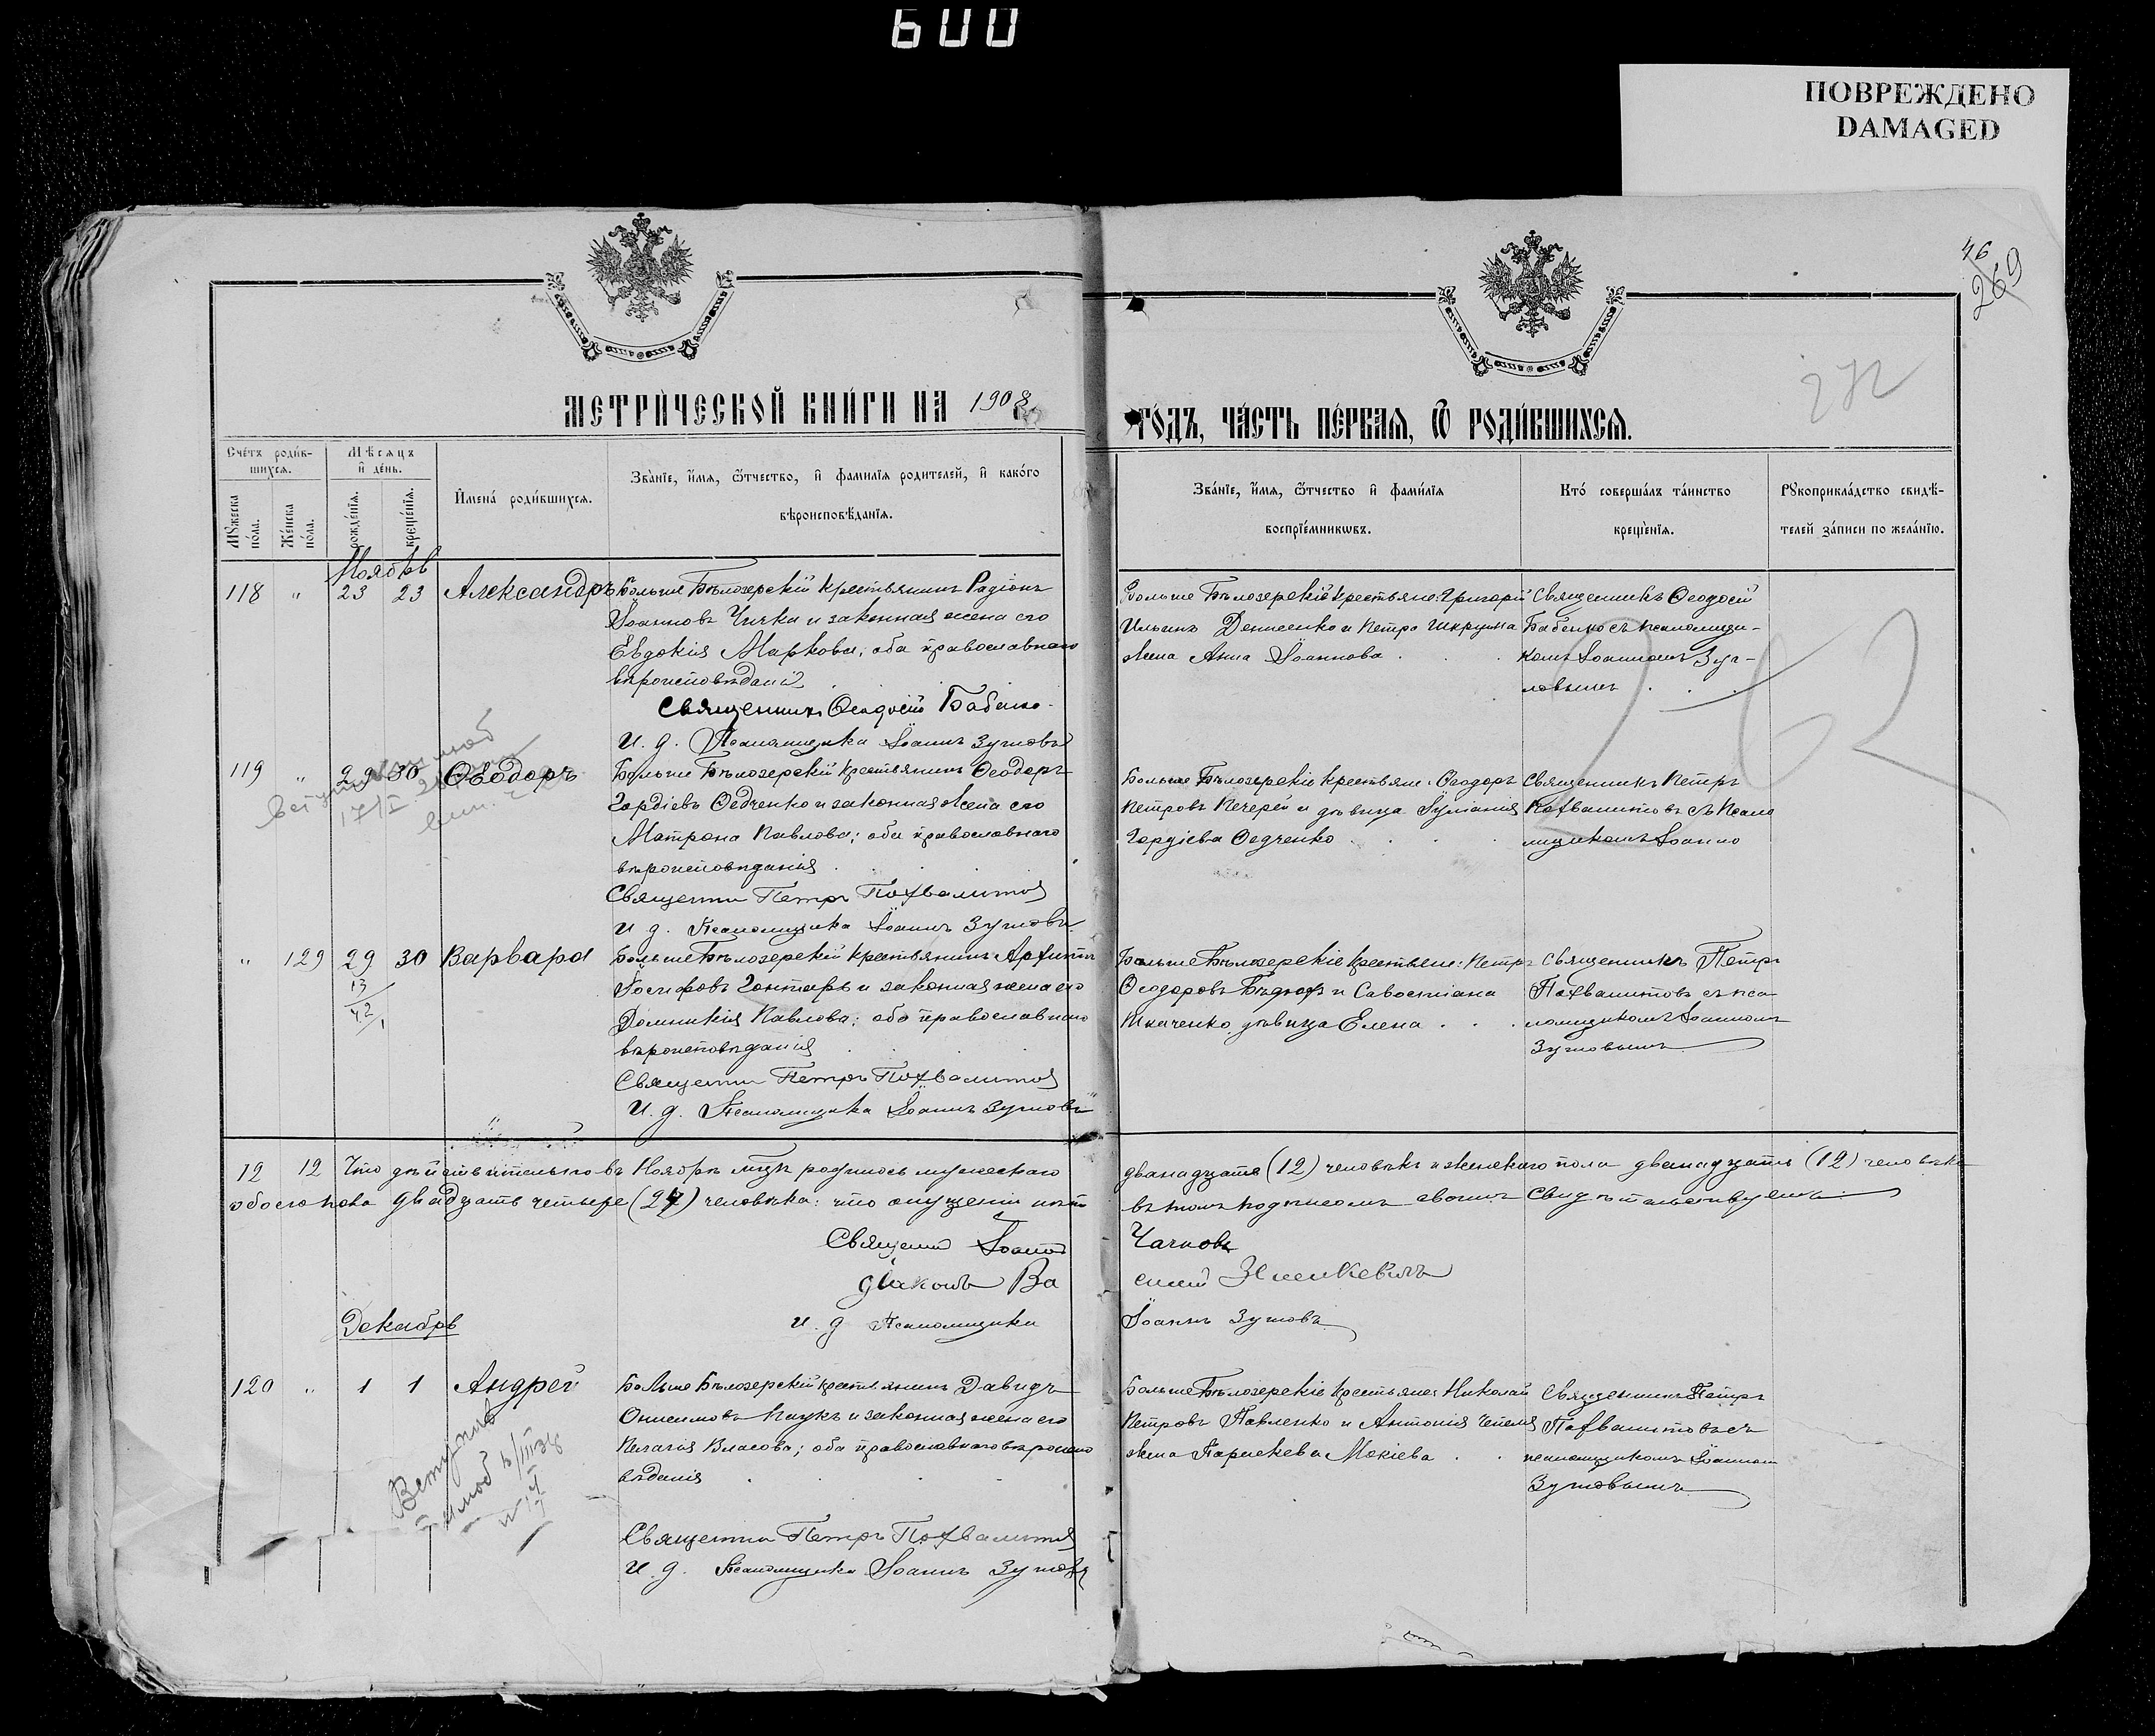 600
ПОВРЕЖДЕНО
DAMAGED
46
269
272
МЕТРИЧЕСКОЙ КНИГИ НА 1908
ГОДЪ, ЧАСТЬ ПЕРВАЯ, Ѿ РОДИВШИХСЯ.
Счетъ родив-
шихся.
Мѣсяцъ
и день.
Мужеска
пола.
Женска
пола.
рожденія.
крещенія.
Имена родившихся.
Званіе, имя, ѿтчество, и фамилія родителей, и какого
вѣроисповѣданія.
Званіе, имя, ѿтчество и фамилія
воспріемниковъ.
Кто совершалъ таинство
крещенія.
Рукоприкладство свидѣ-
телей записи по желанію.
Ноябрь
118 " 23 23 Александръ
Больше Бѣлозерскій крестьянинъ Радіонъ
Іоанновъ Чичка и законная жена его
Евдокія Маркова; оба православнаго
вѣроисповѣданія
Священникъ Ѳеодосій Бабенко
И. д. Псаломщика Іоаннъ Зутовъ
Больше Бѣлозерскіе крестьяне: Григорій
Ильинъ Денисенко и Петра
жена Анна Іоаннова
Священникъ Ѳеодосій
Бабенко съ псаломщи-
комъ Іоанномъ Зут-
ловымъ
119 " 29 30 Ѳеодоръ
Больше Бѣлозерскій крестьянинъ Ѳеодоръ
Гордіевъ Ѳедченко и законная жена его
Матрона Павлова; оба православнаго
вѣроисповѣданія
Священникъ Петръ Похвалитовъ
И д. Псаломщика Іоаннъ Зутовъ
Больше Бѣлозерскіе крестьяне: Ѳеодоръ
Петровъ Печерей и дѣвица Іуліанія
Гордіева Ѳедченко
Священникъ Петръ
Похвалитовъ съ Псало
мщикомъ Іоанно
" 129 29 30 Варвара
13
42
Больше Бѣлозерскій крестьянинъ Архиппъ
Іосифовъ Гонтарь и законная жена его
Домникія Павлова; оба православнаго
вѣроисповѣданія
Священникъ Петръ Похвалитовъ
И. д. Псаломщика Іоаннъ Зутовъ
Больше Бѣлозерскіе крестьяне: Петръ
Ѳеодоровъ и Савостіана
Ткаченко дѣвица Елена
Священникъ Петръ
Похвалитовъ съ пса
ломщикомъ Іоанномъ
Зутовымъ
12 12 Что дѣйствительно въ Ноябрѣ мѣсяцѣ родилось мужескаго
двѣнадцать (12) человѣкъ и женскаго пола двѣнадцать (12) человѣкъ
обоего пола двадцать четыре (24) человѣка: что опущеній нѣтъ
въ томъ подписомъ своимъ Свидѣтельствуемъ
Священникъ Іоаннъ Чачковъ
діаконъ Василій Зенкевичъ
И. д Псаломщика Іоаннъ Зутовъ
Декабрь
120 " 1 1 Андрей
Больше Бѣлозерскій крестьянинъ Давидъ
Онисимовъ Паукъ и законная жена его
Пелагія Власова; оба православнаго вѣроиспо
вѣданія
Священникъ Петръ Похвалитовъ
И. д. Псаломщика Іоаннъ Зутовъ
Больше Бѣлозерскіе крестьяне: Николай
Петровъ Павленко и Антонія Чепеля
жена Параскева Мокіева
Священникъ Петръ
Похвалитовъ съ
псаломщикомъ Іоанномъ
Зутовымъ